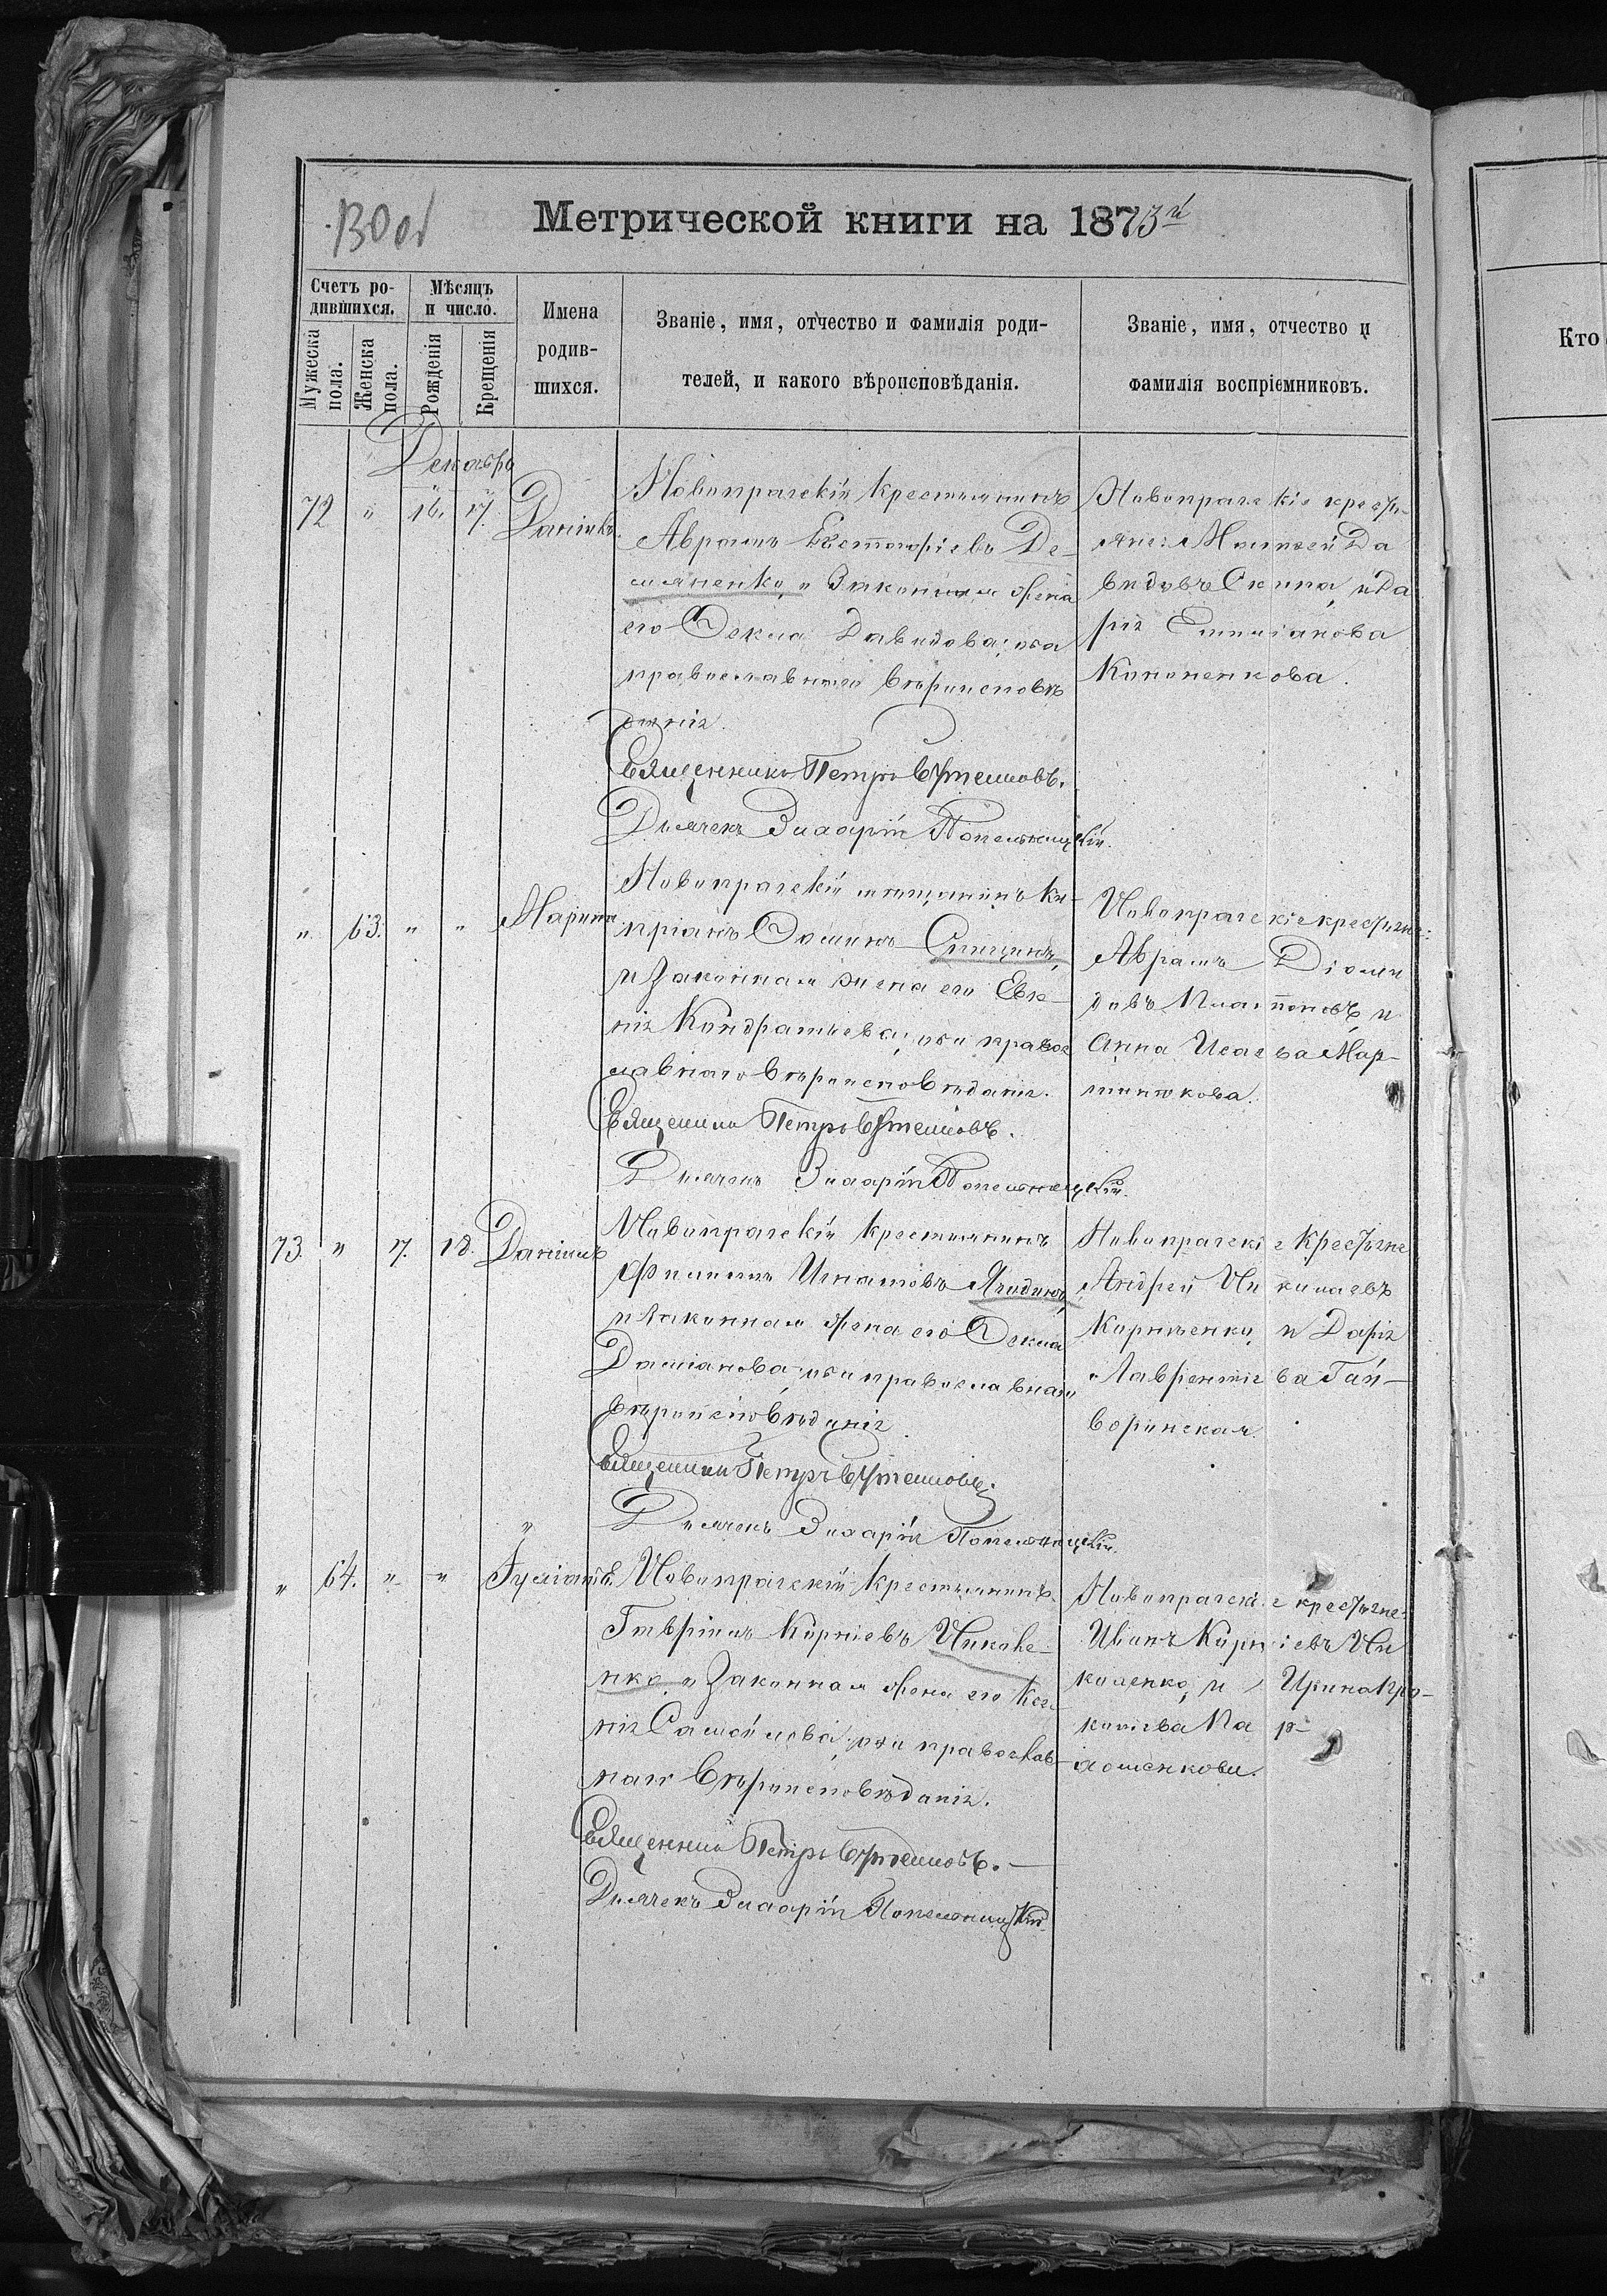 130 об
Метрической книги на 1873й
Счетъ ро-
дившихся.
Мѣсяцъ
и число.
Мужеска
пола.
Женска
пола.
Рожденія
Крещенія
Имена
родив-
шихся.
Званіе, имя, отчество и фамилія роди-
телей, и какого вѣроисповѣданія.
Званіе, имя, отчество и
фамилія воспріемниковъ.
Кто
Декабрь
72 " 16. 17. Даніилъ
Новопражскій крестьянинъ
Аврамъ Евстафіевъ Де-
мяненко, и законная жена
его Ѳекла Давидова; оба
православнаго вѣроисповѣ
данія.
Священникъ Петръ
Дьячекъ Захарій
Новопражскіе крестья-
яне: Моисей Да
видовъ Скипа, и Да
рія Емиліанова
Кононенкова.
" 63. " " Марина
Новопражскій мѣщанинъ Ки-
пріанъ Ѳоминъ Спицинъ,
и законная жена его Евге-
нія Кондратьева; оба правос
лавнаго вѣроисповѣданія.
Священникъ Петръ
Дьячекъ Захарій
Новопражскіе крестьяне:
Аврамъ Діоми
довъ Платоновъ, и
Анна Исаева Мар-
тинюкова.
73 " 17. 18. Даніилъ
Новопражскій крестьянинъ
Филиппъ Игнатовъ
и законная жена его Ѳекла
Даміанова, оба православнаго
вѣроисповѣданія
Священникъ Петръ
Дьячекъ Захарій
Новопражскіе крестьяне
Андрей Николаевъ
Корніенко, и Дарія
Лаврентіева Гай-
воринская.
" 64. " " Іуліанія.
Новопражскій крестьянинъ
Гавріилъ Корніевъ Николе-
нко, и законная жена его Ксе
нія Самойлова; оба православ-
наго вѣроисповѣданія.
Священникъ Петръ
Дьячекъ Захарій
Новопражскіе крестьяне:
Иванъ Корніевъ Ни
коленко, и Ирина Про-
копіева Пар-